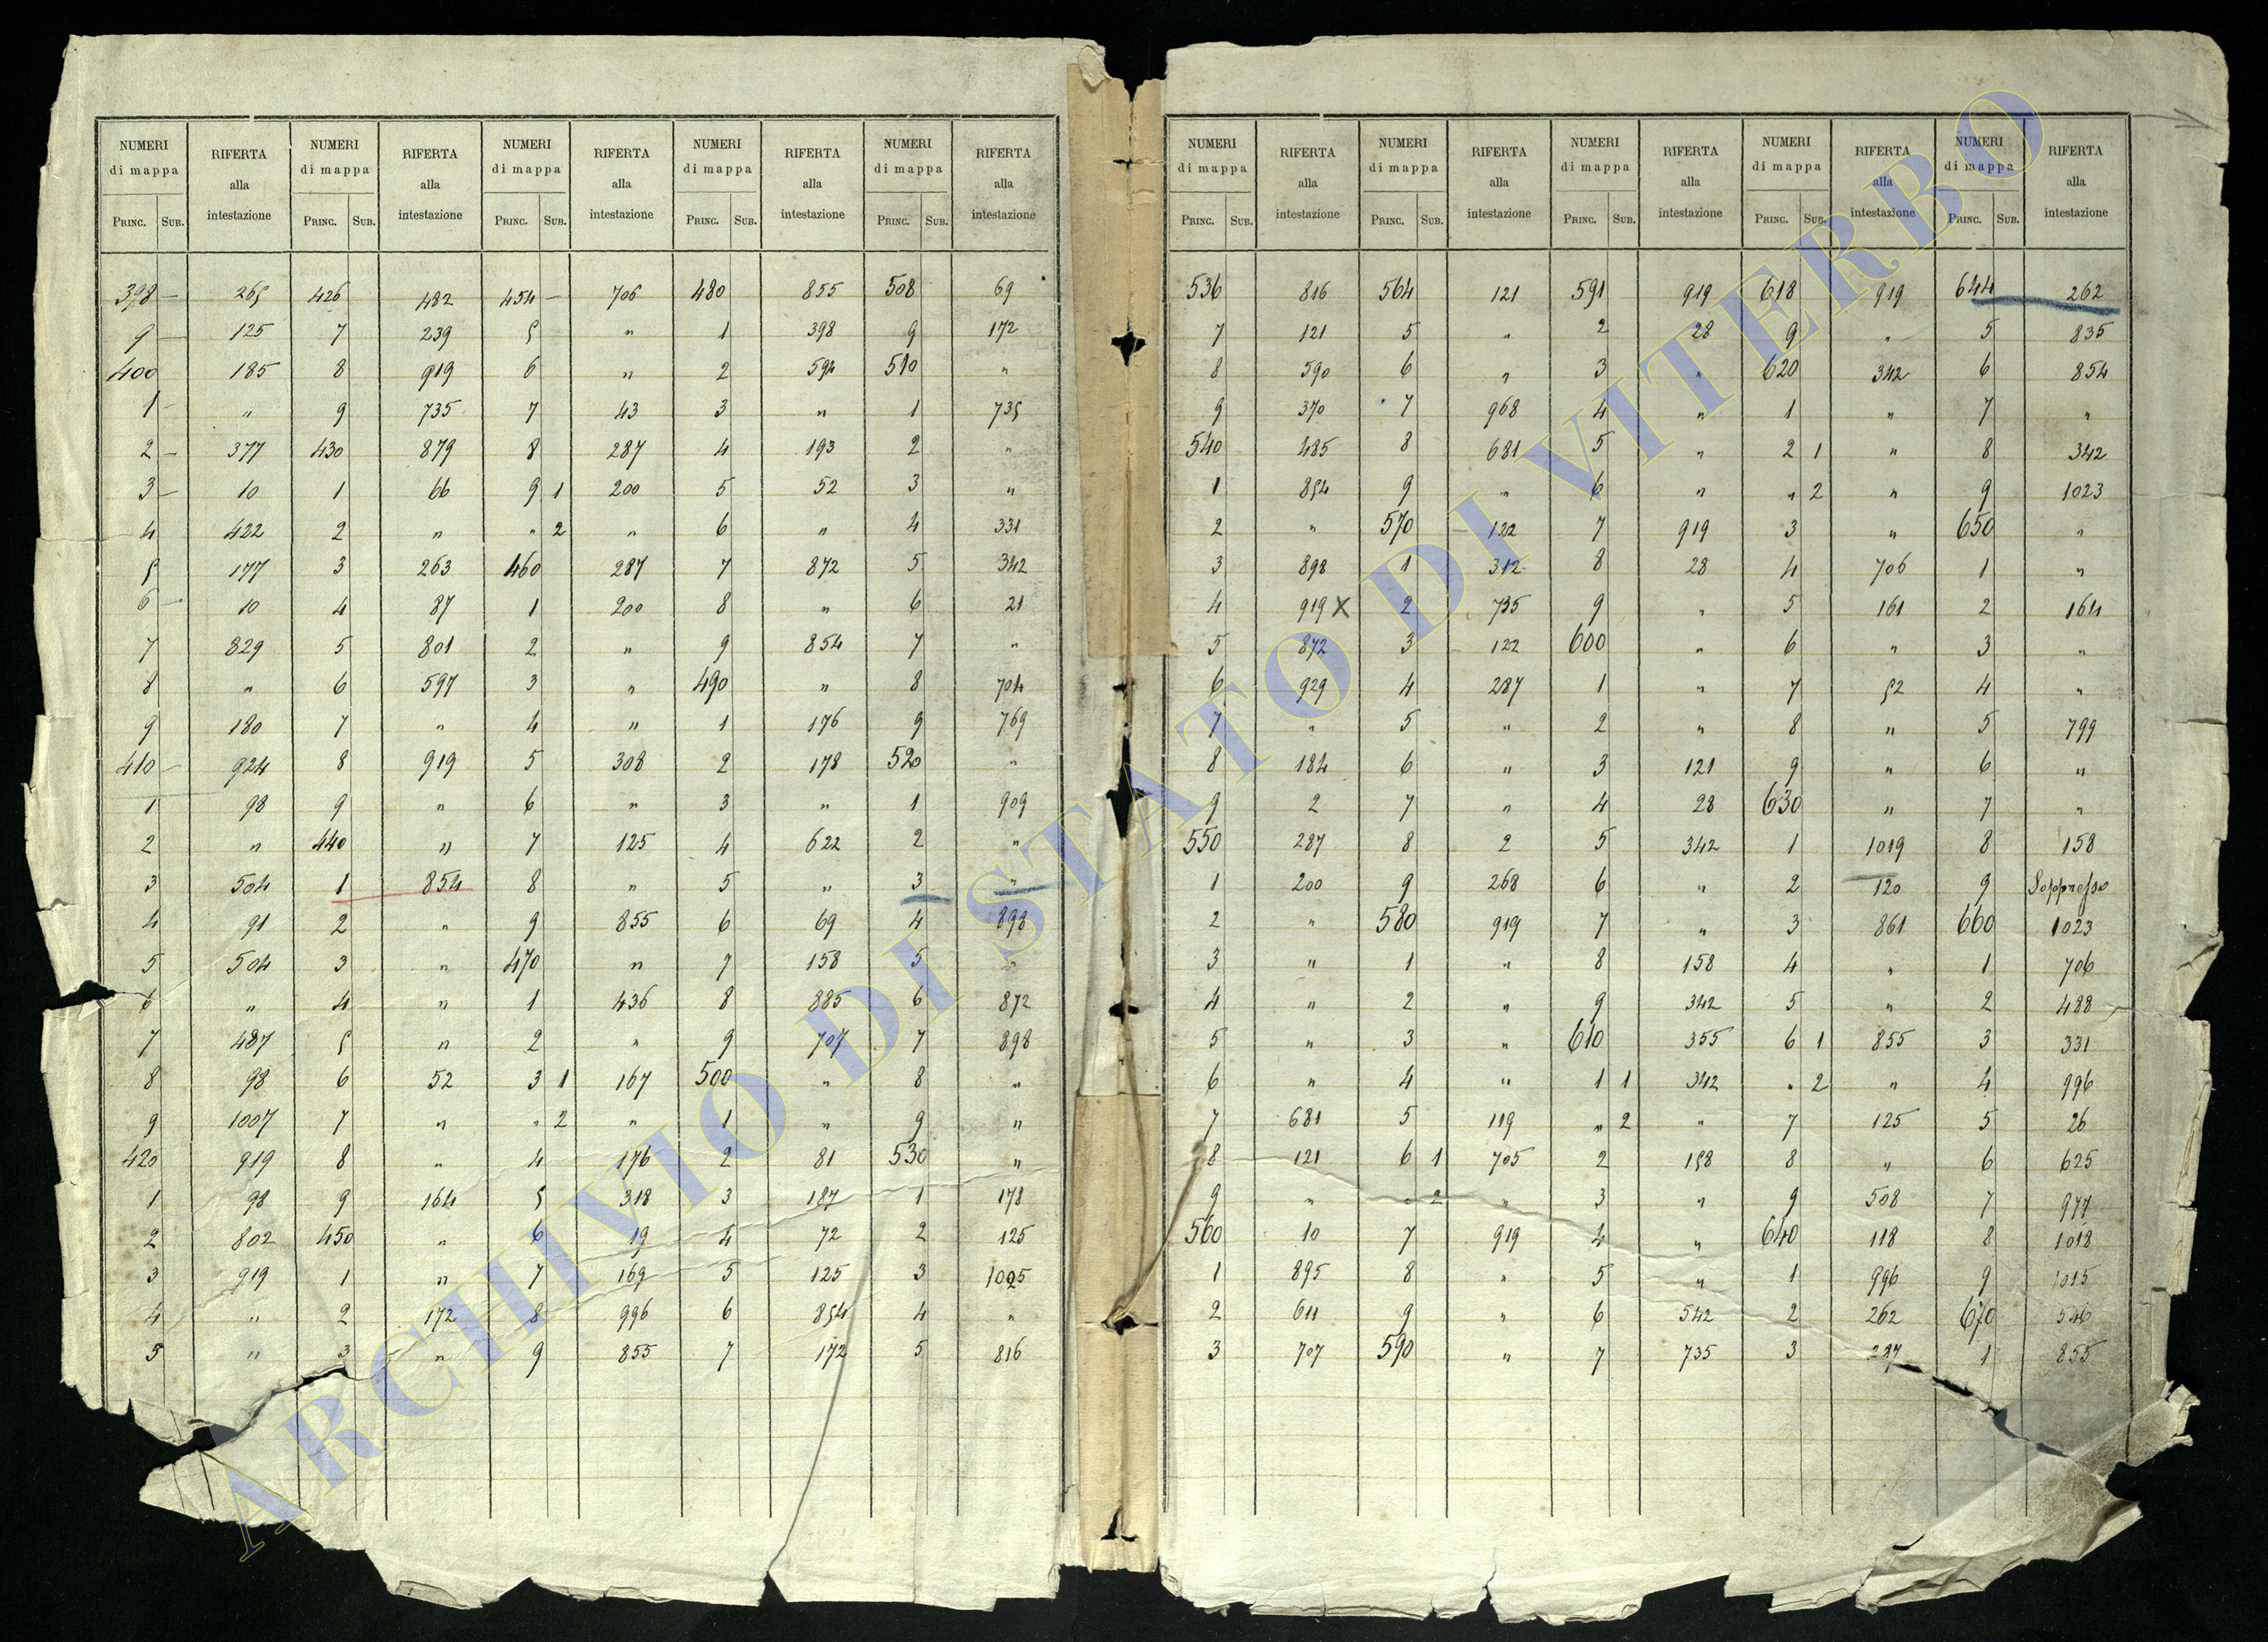 NUMERI RIFERTA NUMERI RIFERTA NUMERI RIFERTA NUMERI RIFERTA NUMERI RIFERTA
di mappa alla di mappa alla di mappa alla di mappa alla di mappa alla
PRINC. SUB. intestazione PRINC. SUB. intestazione PRINC. SUB. intestazione PRINC. SUB. intestazione PRINC. SUB. intestazione
398 — 265 426 482 454 — 706 480 855 508 69
9 — 125 7 239 5 " 1 398 9 172
400 185 8 919 6 " 2 594 510 "
1 — " 9 735 7 43 3 " 1 735
2 — 377 430 879 8 287 4 193 2 "
3 — 10 1 66 9 1 200 5 52 3 "
4 422 2 " " 2 " 6 " 4 331
5 177 3 263 460 287 7 872 5 342
6 — 10 4 87 1 200 8 " 6 21
7 829 5 801 2 " 9 854 7 "
8 " 6 597 3 " 490 " 8 704
9 180 7 " 4 " 1 176 9 769
410 — 924 8 919 5 308 2 178 520 "
1 98 9 " 6 " 3 " 1 909
2 " 440 " 7 125 4 622 2 "
3 504 1 854 8 " 5 " 3 "
4 91 2 " 9 855 6 69 4 898
5 504 3 " 470 " 7 158 5 "
6 " 4 " 1 436 8 885 6 872
7 487 5 " 2 " 9 707 7 898
8 98 6 52 3 1 167 500 " 8 "
9 1007 7 " " 2 " 1 " 9 "
420 919 8 " 4 176 2 81 530 "
1 98 9 164 5 318 3 187 1 178
2 802 450 " 6 19 4 72 2 125
3 919 1 " 7 169 5 125 3 1025
4 " 2 172 8 996 6 854 4 "
5 " 3 " 9 855 7 172 5 816
NUMERI RIFERTA NUMERI RIFERTA NUMERI RIFERTA NUMERI RIFERTA NUMERI RIFERTA
di mappa alla di mappa alla di mappa alla di mappa alla di mappa alla
PRINC. SUB. intestazione PRINC. SUB. intestazione PRINC. SUB. intestazione PRINC. SUB. intestazione PRINC. SUB. intestazione
536 816 564 121 591 919 618 919 644 262
7 121 5 " 2 28 9 " 5 835
8 590 6 " 3 " 620 342 6 854
9 370 7 968 4 " 1 " 7 "
540 485 8 681 5 " 2 1 " 8 342
1 854 9 " 6 " " 2 " 9 1023
2 " 570 122 7 919 3 " 650 "
3 898 1 312 8 28 4 706 1 "
4 919 X 2 735 9 " 5 161 2 164
5 872 3 122 600 " 6 " 3 "
6 929 4 287 1 " 7 52 4 "
7 " 5 " 2 " 8 " 5 799
8 184 6 " 3 121 9 " 6 "
9 2 7 " 4 28 630 " 7 "
550 287 8 2 5 342 1 1019 8 158
1 200 9 268 6 " 2 120 9 Soppresso
2 " 580 919 7 " 3 861 660 1023
3 " 1 " 8 158 4 " 1 706
4 " 2 " 9 342 5 " 2 488
5 " 3 " 610 355 6 1 855 3 331
6 " 4 " 1 1 342 " 2 " 4 996
7 681 5 119 " 2 " 7 125 5 26
8 121 6 1 705 2 158 8 " 6 625
9 " " 2 " 3 " 9 508 7 977
560 10 7 919 4 " 640 118 8 1018
1 895 8 " 5 " 1 996 9 1015
2 611 9 " 6 542 2 262 670 546
3 707 590 " 7 735 3 287 1 855
ARCHIVIO DI STATO DI VITERBO